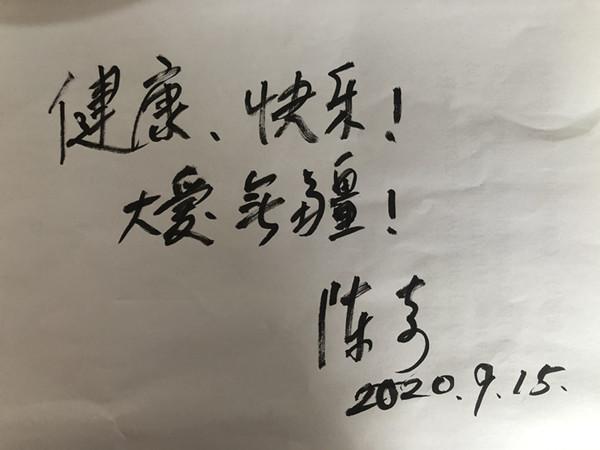 健康、快乐！
大愛無疆！
陈奇
2020.9.15.